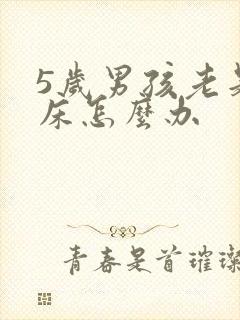 5歲男孩老是
床怎麼办
青春是首璀璨